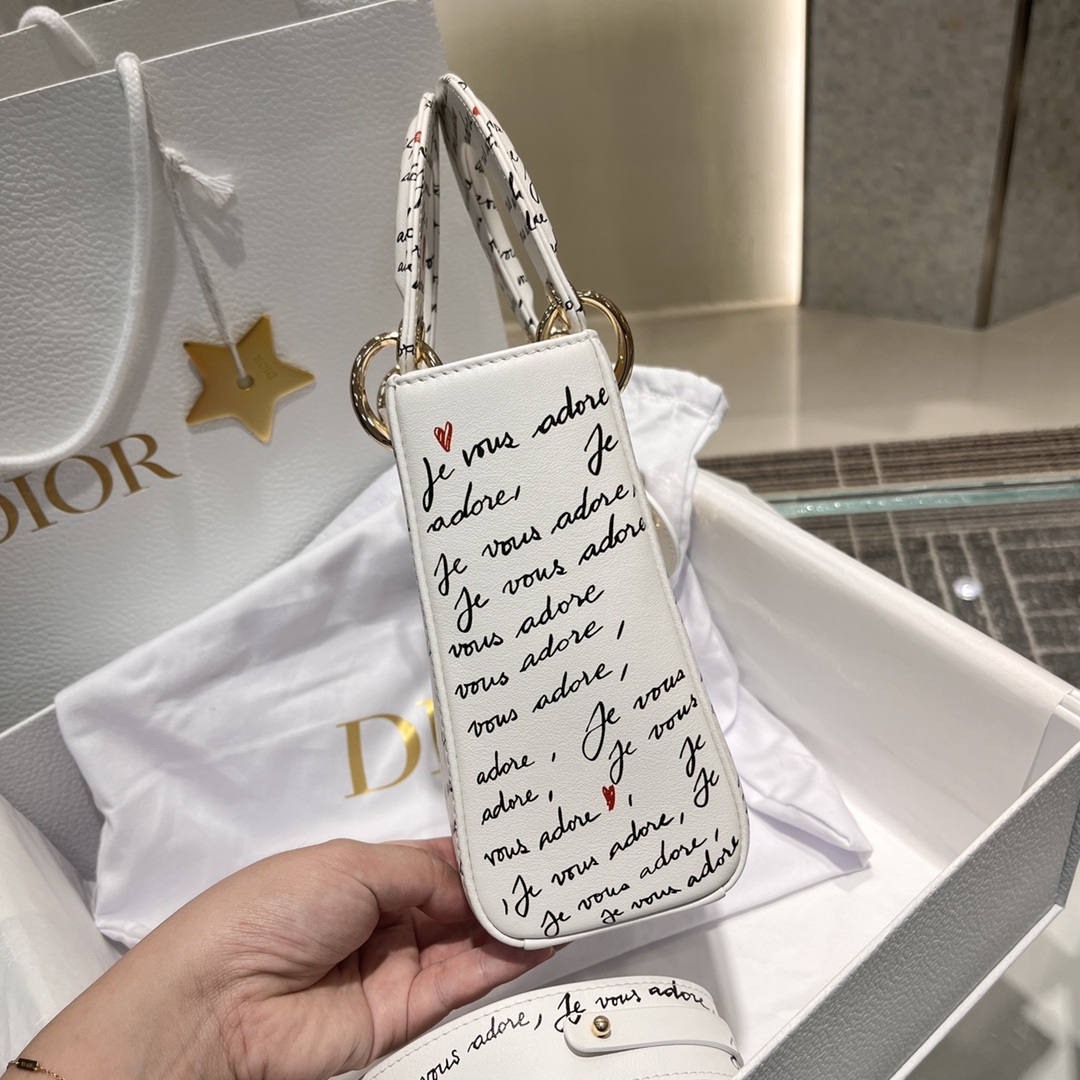 DIOR
DIOR
Je vous adore
adore, Je
Je vous adore,
Je vous adore
vous adore
vous adore,
vous adore,
adore, Je vous
adore, Je vous
vous adore, Je
Je
,Je vous adore,
Je vous adore,
Je vous adore
vous adore, Je vous adore